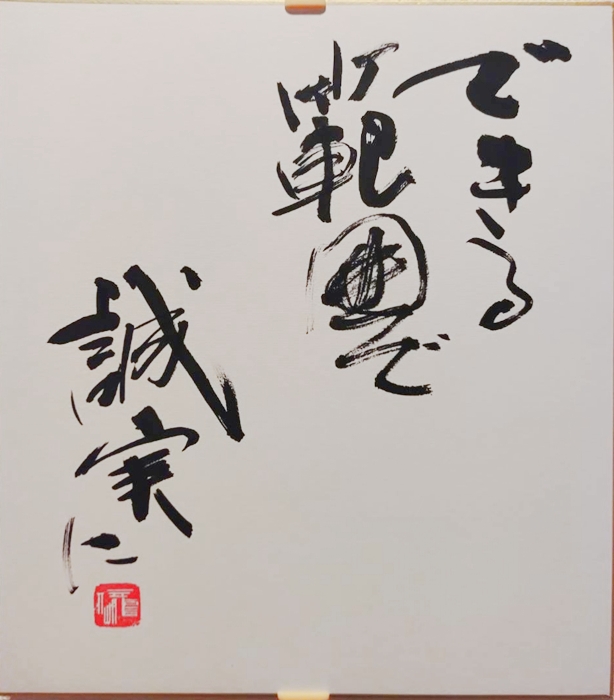 できる
範囲で
誠実に